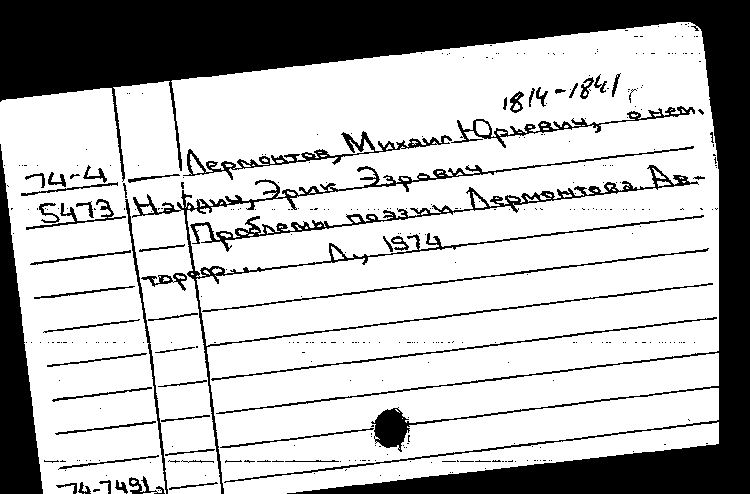 1814-1841 г
Лермонтов, Михаил Юрьевич, о нем.
74-4
5473 Найдич, Эрик Эзрович.
Проблемы поэзии Лермонтова. Ав-
тореф... Л., 1974.
74-7491